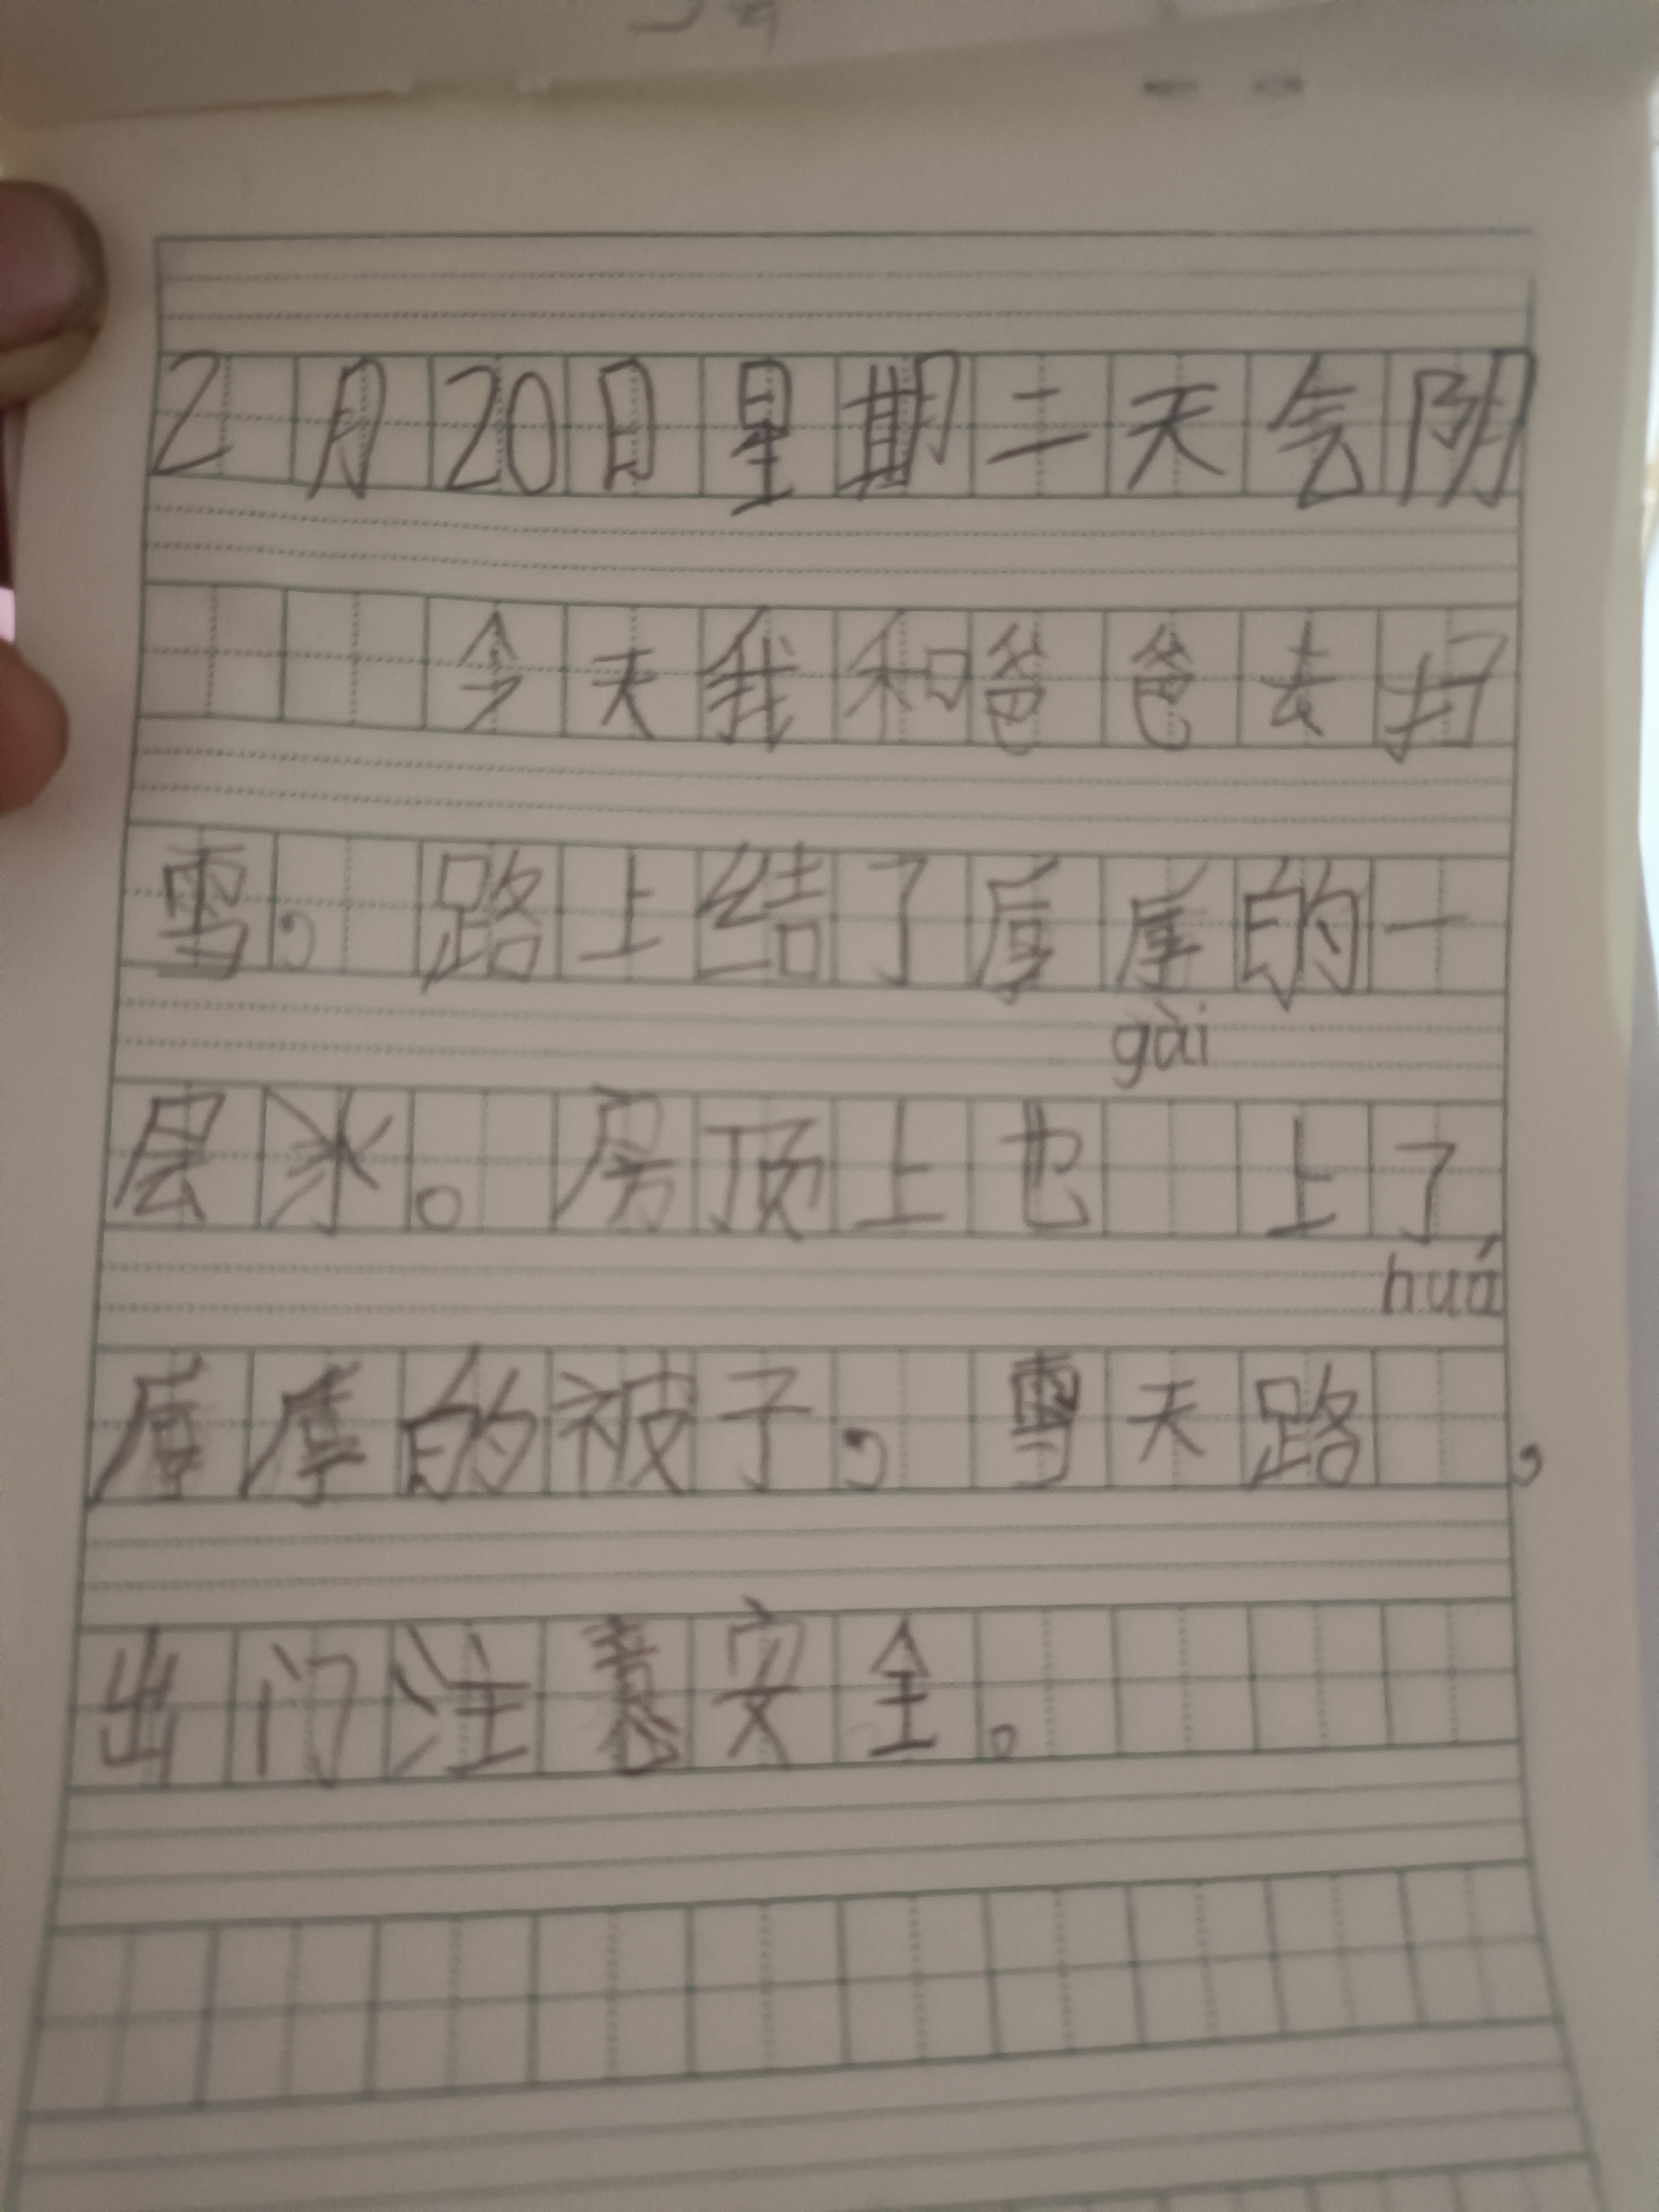 2月20日星期二天气阴
今天我和爸爸去扫
雪,路上结了厚厚的一
gài
层冰。房顶上也 上了
huá
厚厚的被子,雪天路 ,
出门注意安全。